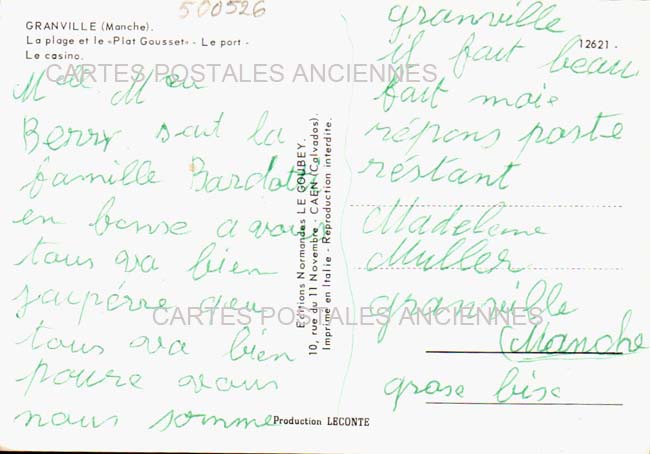 500526
GRANVILLE (Manche).
La plage et le «Plat Gousset» - Le port -
Le casino.
12621 -
CARTES POSTALES ANCIENNES
Berry sait la
famille Bardot
en bonse a vous
tous va bien
jaupérre que
tous va bien
poure vous
nous somme
Editions Normandes LE GOUBEY.
10, rue du 11 Novembre - CAEN (Calvados).
Imprimé en Italie - Reproduction interdite.
granville
il fait beau
fait moie
répons poste
réstant
Madeleine
Muller
granville
(Manche
grose bise
CARTES POSTALES ANCIENNES
Production LECONTE